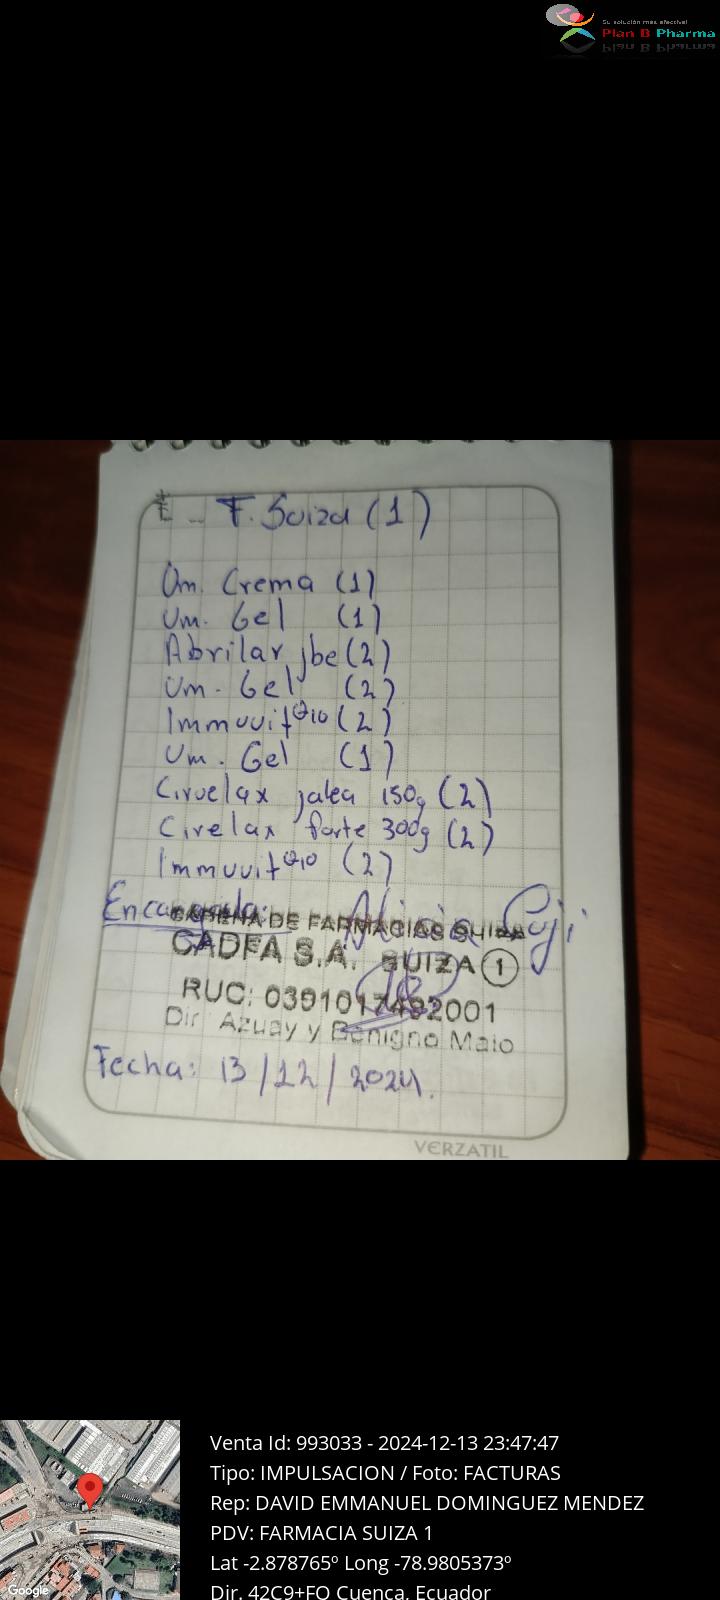 Su solución mas efectiva!
Plan B Pharma
F. Suiza (1)
Um. Crema (1)
Um. Gel (1)
Abrilar jbe (2)
Um. Gel (2)
Immuvit Q10 (2)
Um. Gel (1)
Ciruelax jalea 150g (2)
Cirelax forte 300g (2)
Immuvit Q10 (2)
Encargada:
CADENA DE FARMACIAS SUIZA
CADFA S.A. SUIZA 1
RUC: 0391017492001
Dir: Azuay y Benigno Malo
Fecha: 13/12/2024.
VERZATIL
Venta Id: 993033 - 2024-12-13 23:47:47
Tipo: IMPULSACION / Foto: FACTURAS
Rep: DAVID EMMANUEL DOMINGUEZ MENDEZ
PDV: FARMACIA SUIZA 1
Lat -2.878765º Long -78.9805373º
Dir. 42C9+FQ Cuenca, Ecuador
Google